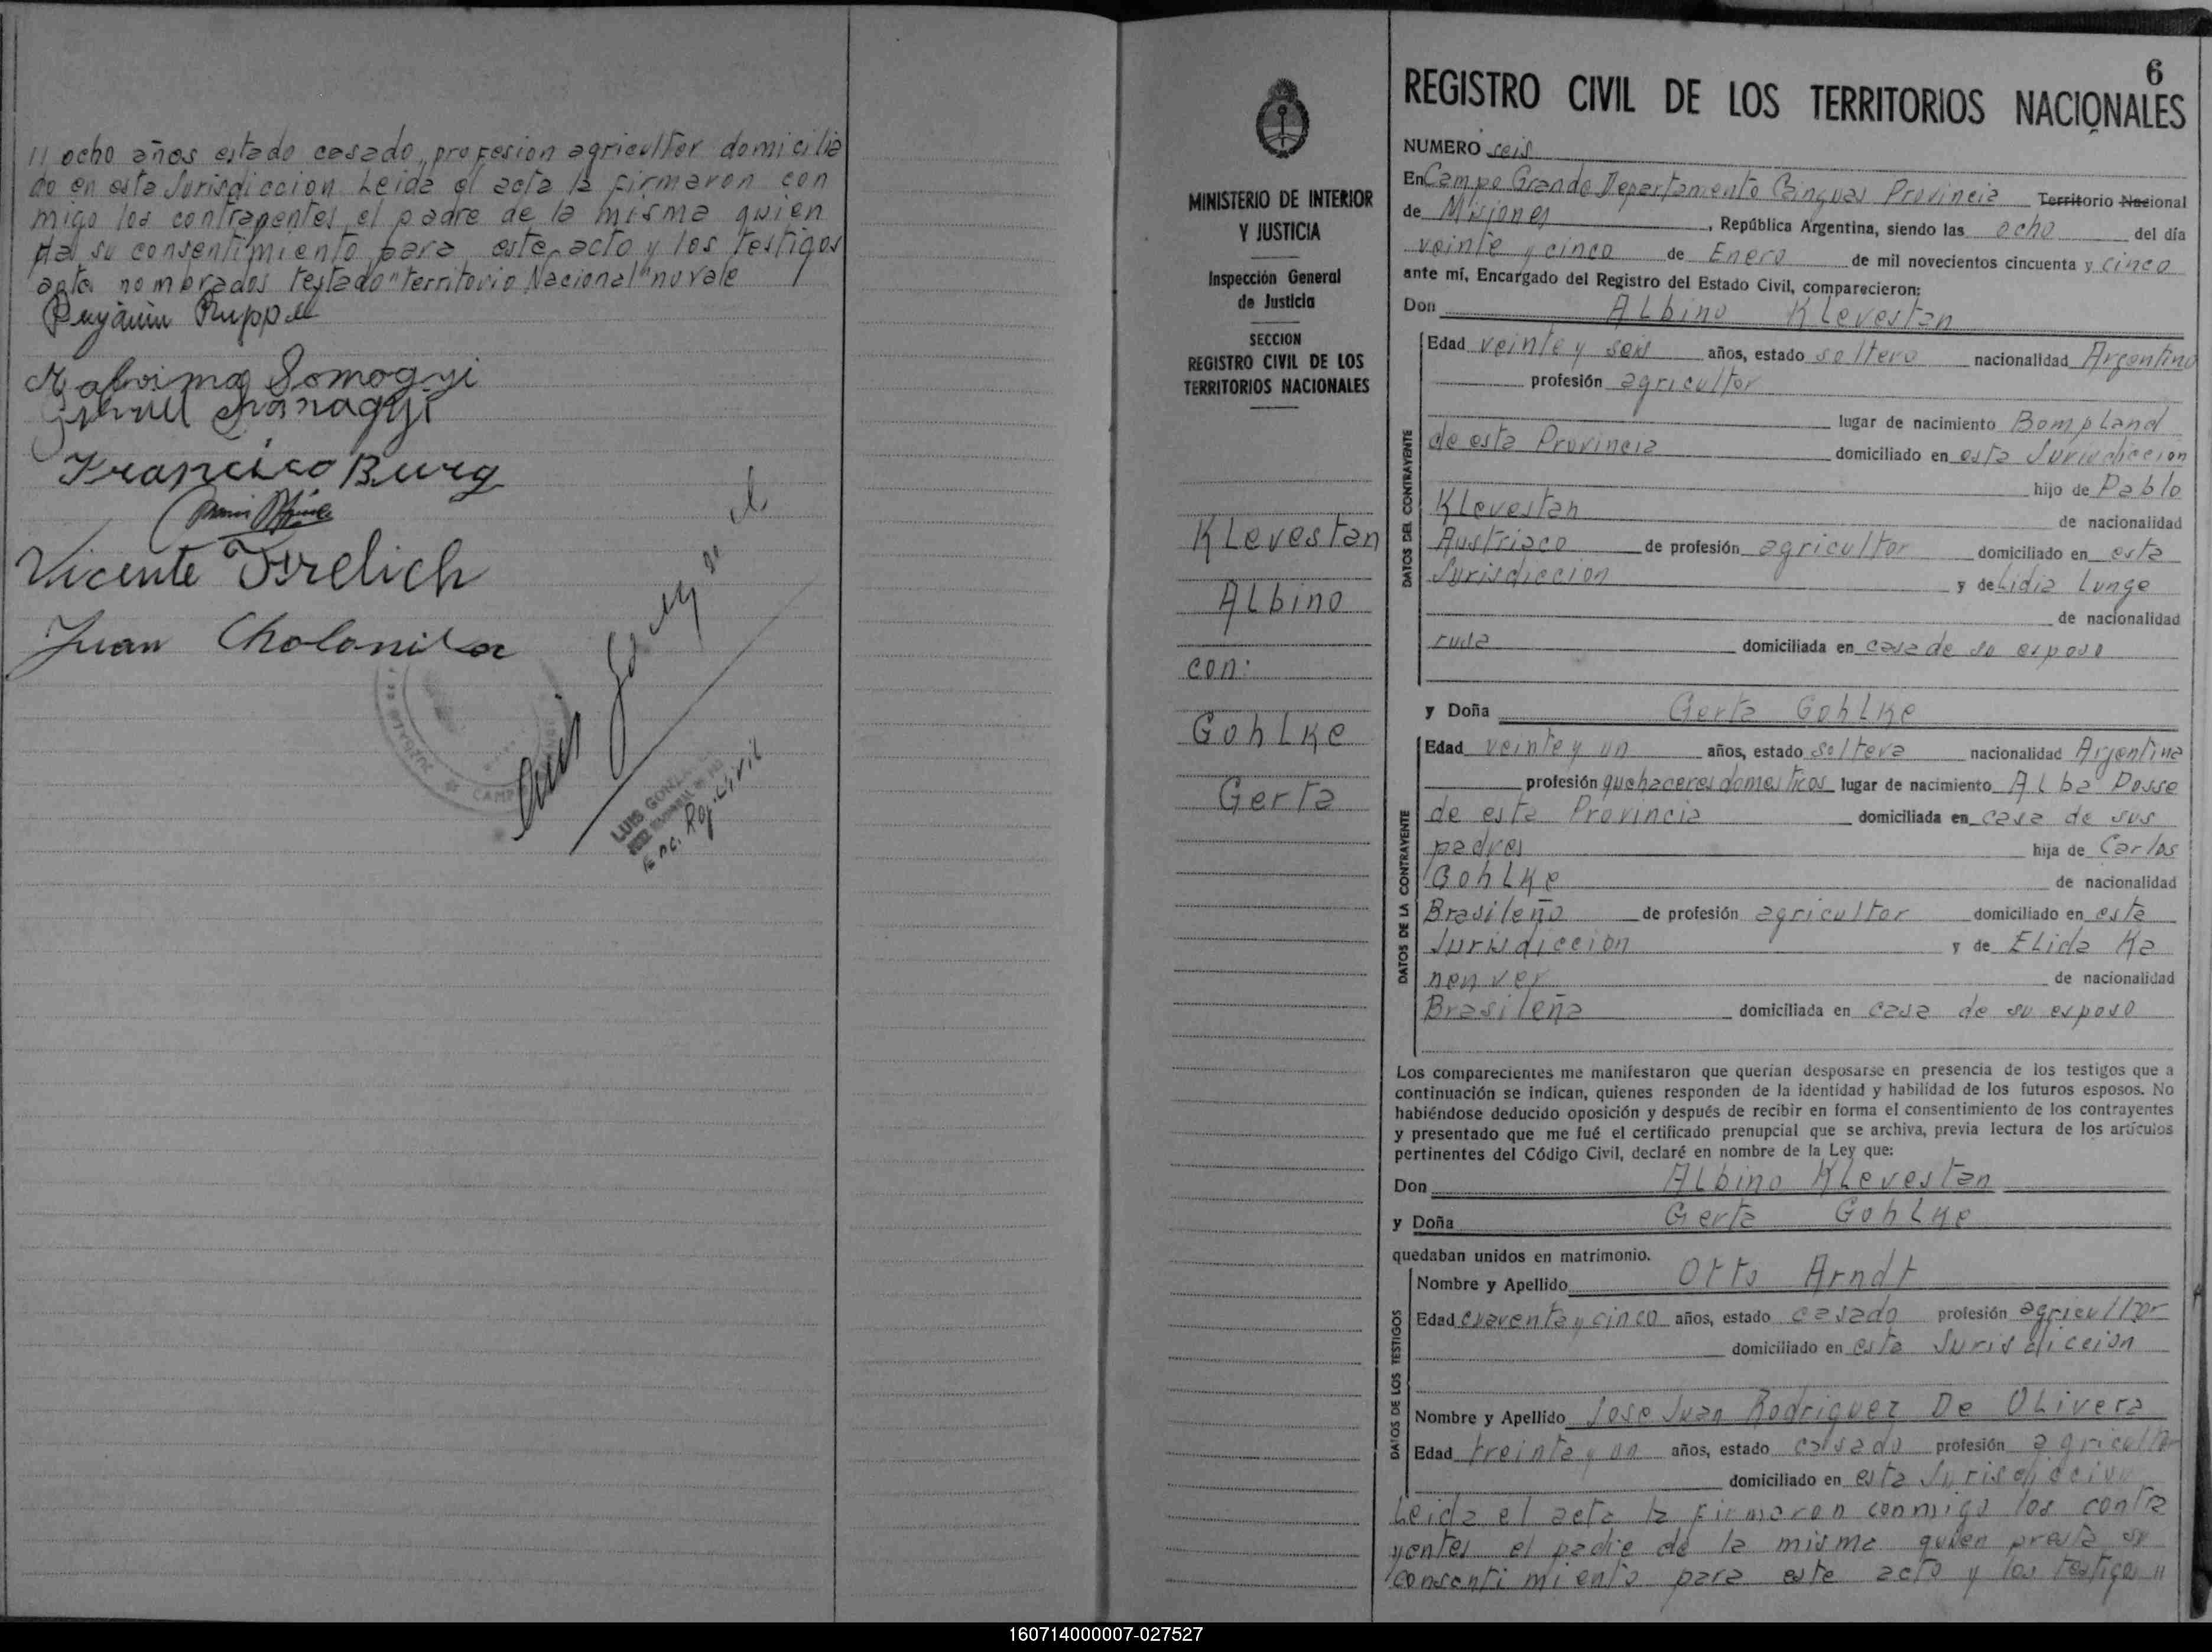 " ocho años estado casado, profesion agricultor domicilia
do en esta Jurisdiccion Leida el acta la firmaron con
migo los contrayentes el padre de la misma quien
da su consentimiento para este acto y los testigos
antes nombrados testado "Territorio Nacional" no vale
Benjamin Ruppel
Malvima Somogyi
Somogyi
Francisco Burg
Vicente
Juan
CAMP
LUIS GONZ
Enc. Reg. Civil
MINISTERIO DE INTERIOR
Y JUSTICIA
Inspección General
de Justicia
SECCION
REGISTRO CIVIL DE LOS
TERRITORIOS NACIONALES
Klevestan
Albino
con:
Gohlke
Gerta
6
REGISTRO CIVIL DE LOS TERRITORIOS NACIONALES
NUMERO seis
En Campo Grande Departamento Cainguas Provincia Territorio Nacional
de Misiones, República Argentina, siendo las ocho del día
veinte y cinco de Enero de mil novecientos cincuenta y cinco
ante mí, Encargado del Registro del Estado Civil, comparecieron:
Don Albino Klevestan
DATOS DEL CONTRAYENTE
Edad veinte y seis años, estado soltero nacionalidad Argentino
profesión agricultor
lugar de nacimiento Bompland
de esta Provincia domiciliado en esta Jurisdiccion
hijo de Pablo
Klevestan de nacionalidad
Austriaco de profesión agricultor domiciliado en esta
Jurisdiccion y de Lidia Lunge
de nacionalidad
rusa domiciliada en casa de su esposo
y Doña Gerta Gohlke
DATOS DE LA CONTRAYENTE
Edad veinte y un años, estado soltera nacionalidad Argentina
profesión quehaceres domesticos lugar de nacimiento Alba Posse
de esta Provincia domiciliada en casa de sus
padres hija de Carlos
Gohlke de nacionalidad
Brasileño de profesión agricultor domiciliado en esta
Jurisdiccion y de Elida Ka
nenver de nacionalidad
Brasileña domiciliada en casa de su esposo
Los comparecientes me manifestaron que querían desposarse en presencia de los testigos que a
continuación se indican, quienes responden de la identidad y habilidad de los futuros esposos. No
habiéndose deducido oposición y después de recibir en forma el consentimiento de los contrayentes
y presentado que me fué el certificado prenupcial que se archiva, previa lectura de los artículos
pertinentes del Código Civil, declaré en nombre de la Ley que:
Don Albino Klevestan
y Doña Gerta Gohlke
quedaban unidos en matrimonio.
DATOS DE LOS TESTIGOS
Nombre y Apellido Otto Arndt
Edad cuarenta y cinco años, estado casado profesión agricultor
domiciliado en esta Jurisdiccion
Nombre y Apellido Jose Juan Rodriguez De Olivera
Edad treinta y un años, estado casado profesión agricultor
domiciliado en esta Jurisdiccion
Leida el acta la firmaron conmigo los contra
yentes el padre de la misma quien presta su
consentimiento para este acto y los testigos "
160714000007-027527